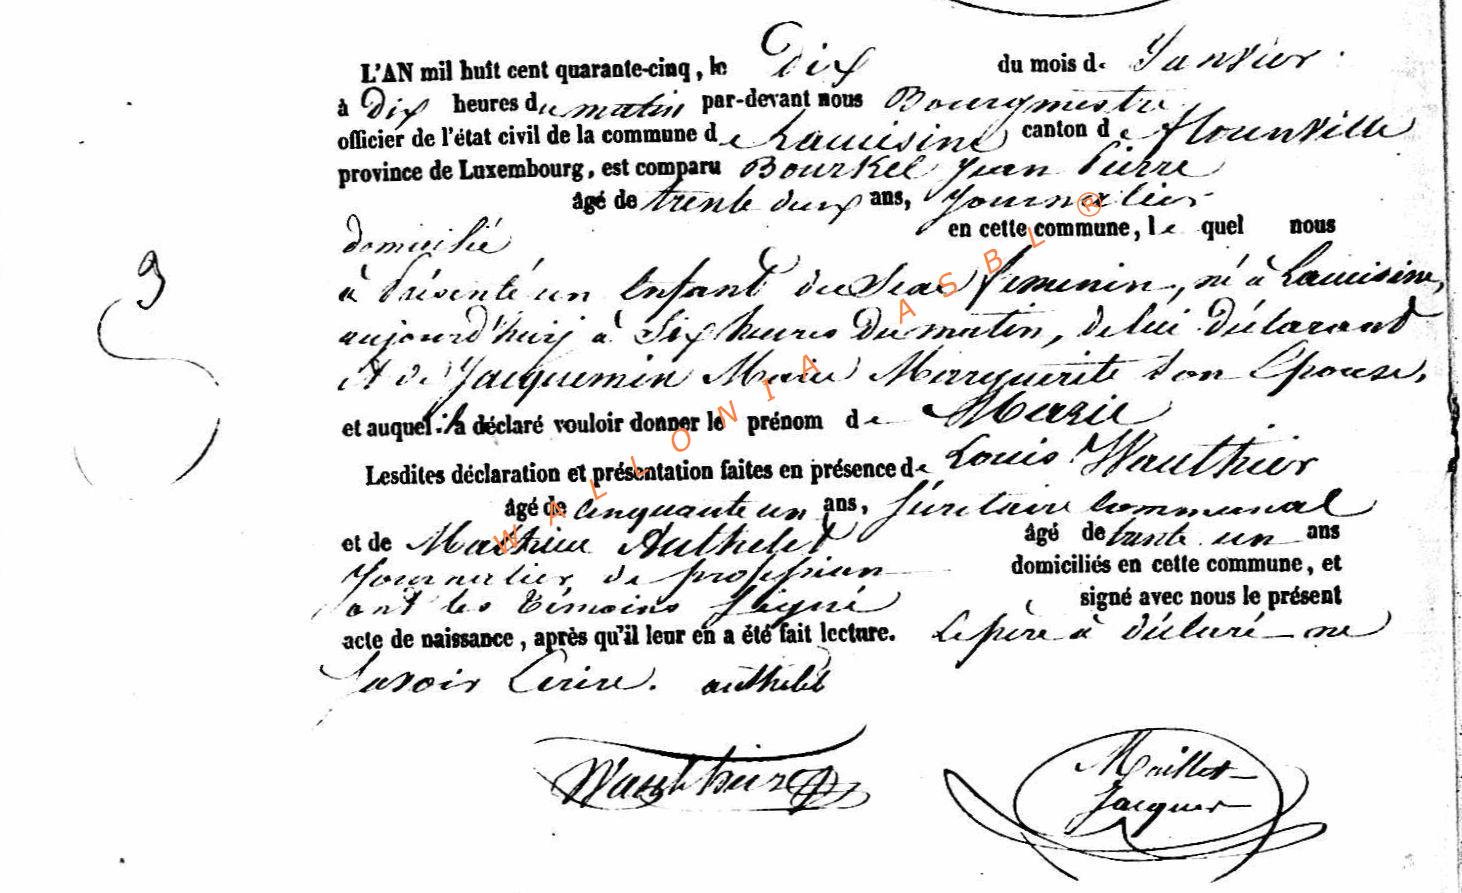 L'AN mil huit cent quarante-cinq, le Dix du mois de Janvier
à Dix heures du matin par-devant nous Bourgmestre
officier de l'état civil de la commune de Lacuisine canton de florenville
province de Luxembourg, est comparu Bourkel Jean Pierre
âgé de trente deux ans, Journalier
domicilié en cette commune, le quel nous
à Présenté un Enfant du Sexe feminin, né à Lacuisine,
aujourd'huij à Six heures Du matin, de lui Déclarant
et de Jacquemin Marie Marguerite Son Epouse,
et auquel il a déclaré vouloir donner le prénom de Marie
Lesdites déclaration et présentation faites en présence de Louis Wauthier
âgé de Cinquante un ans, Sécrétaire Communal
et de Mathieu Authelet âgé de trente un ans
Journalier de profession domiciliés en cette commune, et
ont les Témoins Signé signé avec nous le présent
acte de naissance, après qu'il leur en a été fait lecture. Le père à déclaré ne
Savoir Ecrire. authelet
Wauthier
Maillet
Jacques
3
WALLONIA ASBL ®